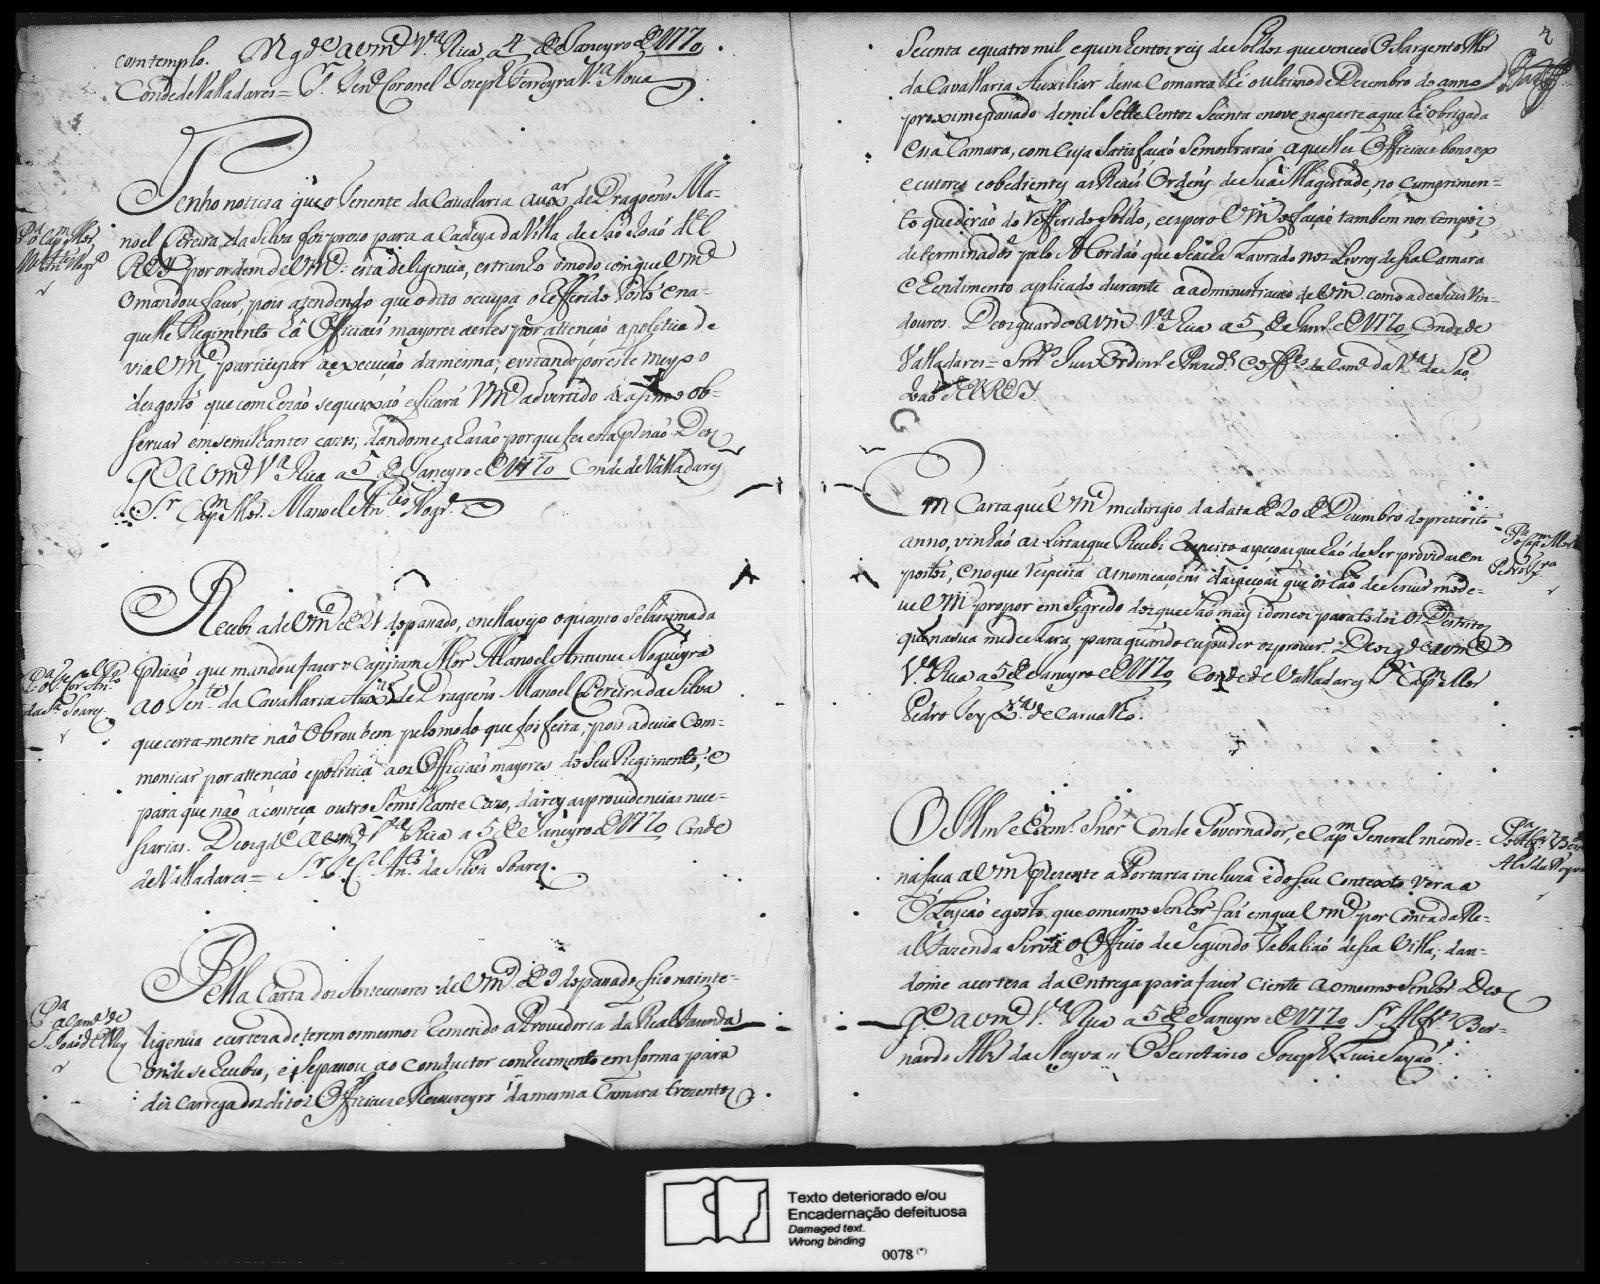 comtemplo. N g.de a vm.ce V.a Rica a 4 de Janeyro de 1770
Conde de Valladares = S.r Ten.e Coronel Joseph Ferreyra V.a Nova
Tenho noticia que o Tenente da Cavallaria aux.ar de Dragoens Ma-
noel Pereira da Silva foi prezo para a Cadeya da Villa de Saõ Joaõ del
Rey por ordem de Vm.ce: esta deligencia, estranho o modo com que Vm.ce
o mandou fazer, pois atendendo que o dito occupa o refferido Posto e na-
quelle Regimento há Officiaes mayores a estes por attençaõ a politica de
via Vm.ce participar a execuçaõ da mesma; evitando por este meyo o
desgosto que com rezaõ se queixaõ e ficará Vm.ce advertido de assim o ob-
servar em semilhantes cazos, dandome a razaõ porque fez esta prizaõ. Deos
g.e a vm.ce V.a Rica a 5 de Janeyro de 1770 Conde de Valladares
S.r Cap.m Mor. Manoel An.to Nogr.a
P.a o Cap.m Mor
M.el An.to Nogr.a
Recebi a de Vm.ce de 21 do passado, e nella vejo o quanto se lastima da
prizaõ que mandou fazer o Capitam Mor Manoel Antunes Nogueyra
ao Ten.te da Cavallaria Aux.ar de Dragoens Manoel Pereira da Silva
que certamente naõ obrou bem pelo modo que foi feita, pois a devia Com-
monicar por attençaõ e politica aos Officiaes mayores do seu Regimento, e
para que naõ aconteça outro semilhante cazo, darey as providencias nece-
sarias. Deos g.de a vm.ce V.a Rica a 5 de Janeyro de 1770 Conde
de Valladares = S.r T.e C.el An.to da Silva Soares.
P.a o T.e C.el An.to
da S.a Soares
Pella Carta dos Antecessores de Vm.ces de 9 do passado, fico na inte-
ligencia e certeza de terem os mesmos remetido a Provedoria da Real Fazenda
onde se recebeo, e se passou ao conductor conhecimento em forma para
des carrega dos ditos Officiaes e Thezoureyro da mesma Camara trezentos
P.a
a Cam.ra de
S. Joaõ d'El Rey
2
secenta e quatro mil e quinhentos reis de Soldos que venceo o Sargento Mor
da Cavallaria Auxiliar dessa Comarca thé o ultimo de Dezembro do anno
proximepassado de mil Sette Centos Secenta e nove na parte a que hé obrigada
essa Camara, com cuja satisfaçaõ se mostraraõ aquelles Officiaes bons ex
ecutores e obedientes as Reaes Ordens de Sua Magestade, no cumprimen-
to que deraõ do refferido soldo, e espero Vm.ces o façaõ tambem nos tempos
determinados pelo Acordaõ que se acha Lavrado nos Livros dessa Camara
e rendimento aplicado durante a administraçaõ de Vm.ces como a de seus vin-
douros. Deos guarde a Vm.ces V.a Rica a 5 de Janr.o de 1770 Conde de
Valladares = Snr.es Juiz Ordinr.o e Veread.es e Off.es da Cam.ra da V.a de Saõ
Joaõ DEL REY
Em Carta que Vm.ce me dirigio da data de 20 de Dezembro do preterito
anno, vinhaõ as Listas que Recebi respeito as peçoas que haõ de ser providas em
postos, e no que respeita as nomeaçoens das peçoas que os haõ de servir me de-
ve Vm.ce propor em segredo dos que saõ mais idoneos para todos os Destritos
que na sua me declara, para quando eu puder os prover. Deos g.de a vm.ce
V.a Rica a 5 de Janeyro de 1770 Conde de Valladares S.r Cap.m Mor
Pedro Teyx.ra de Carvalho.
P.a o Cap.m Mor
Pedro Teyx.ra
O Illm.o e Exm.o Snor Conde Governador, e Cap.m General me orde-
na faça a Vm.ce prezente a Portaria incluza e do seu Contexto verá a
Eleyçaõ e gosto que o mesmo Senhor faz em que Vm.ce por Conta da Re-
al Fazenda sirva o Officio de Segundo Tabaliaõ dessa Villa; dan-
dome a certeza da entrega para fazer ciente ao mesmo Senhor. Deos
g.de a vm.ce V.a Rica a 5 de Janeyro de 1770 S.r Alf.es Ber-
nardo Alz da Neyva // O Secretario Joseph Luis Sayaõ.
P.a
o Alf.es Ber.do
Alz da Neyva
Texto deteriorado e/ou
Encadernação defeituosa
Damaged text.
Wrong binding
0078 (*)